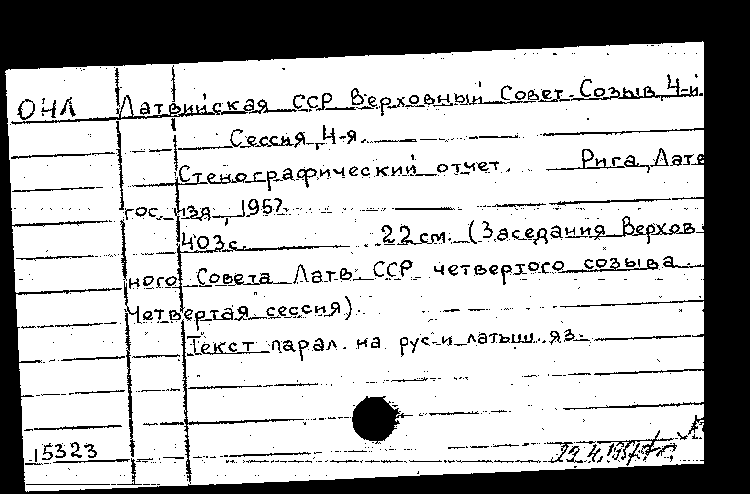 ОНЛ Латвийская ССР Верховный Совет. Созыв, 4-й.
Сессия, 4-я.
Стенографический отчет. Рига, Латв
гос. изд, 1957.
403 с. 22 см. (Заседания Верхов-
ного Совета Латв. ССР четвертого созыва.
Четвертая сессия).
Текст парал. на рус. и латыш. яз.
15323